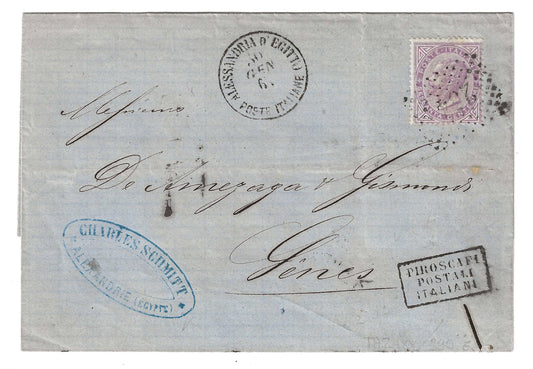 ALESSANDRIA D'EGITTO
GEN
POSTE ITALIANE
Messieurs
De Amezaga & Gismondi
Gênes
CHARLES SCHMITT
ALEXANDRIE (EGYPTE)
PIROSCAFI
POSTALI
ITALIANI